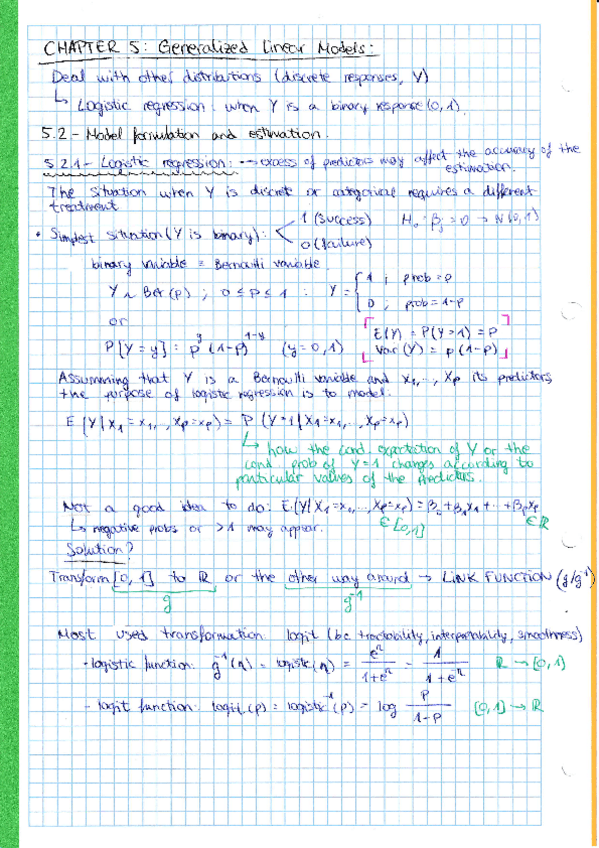 CHAPTER 5: Generalized Linear Models:
Deal with other distributions (discrete responses, Y)
↳ Logistic regression: when Y is a binary response (0,1).
5.2.- Model formulation and estimation.
5.2.1.- Logistic regression: --→ excess of predictors may affect the accuracy of the estimation.
The situation when Y is discrete or categorical requires a different
treatment
• Simplest situation (Y is binary): < 1 (success) H₀: βⱼ = 0 → N(0,1)
0 (failure)
binary variable = Bernoulli variable.
Y ~ Ber(p) ; 0 ≤ p ≤ 1 : Y = { 1 ; prob = p
0 ; prob = 1-p
or
P[Y = y] = p^y (1-p)^{1-y} (y = 0,1) E(Y) = P(Y=1) = p
Var(Y) = p(1-p)
Assumming that Y is a Bernoulli variable and X₁, ..., Xp its predictors,
the purpose of logistic regression is to model:
E[Y|X₁ = x₁, ..., Xp = xp] = P(Y=1|X₁ = x₁, ..., Xp = xp)
↳ how the cond. expectation of Y or the
cond. prob of Y=1 changes according to
particular values of the predictors.
Not a good idea to do: E(Y|X₁=x₁, ..., Xp=xp) = β₀ + β₁x₁ + ... + βpxp
↳ negative probs or >1 may appear. ∈ [0,1] ∈ ℝ
Solution?
Transform [0,1] to ℝ or the other way around → LINK FUNCTION (g/g⁻¹)
g g⁻¹
Most used transformation: logit (bc tractability, interpretability, smoothness)
- logistic function: g⁻¹(η) = logistic(η) = e^η / (1+e^η) = 1 / (1+e^η) ℝ → [0,1]
- logit function: logit(p) = logistic⁻¹(p) = log p / (1-p) [0,1] → ℝ